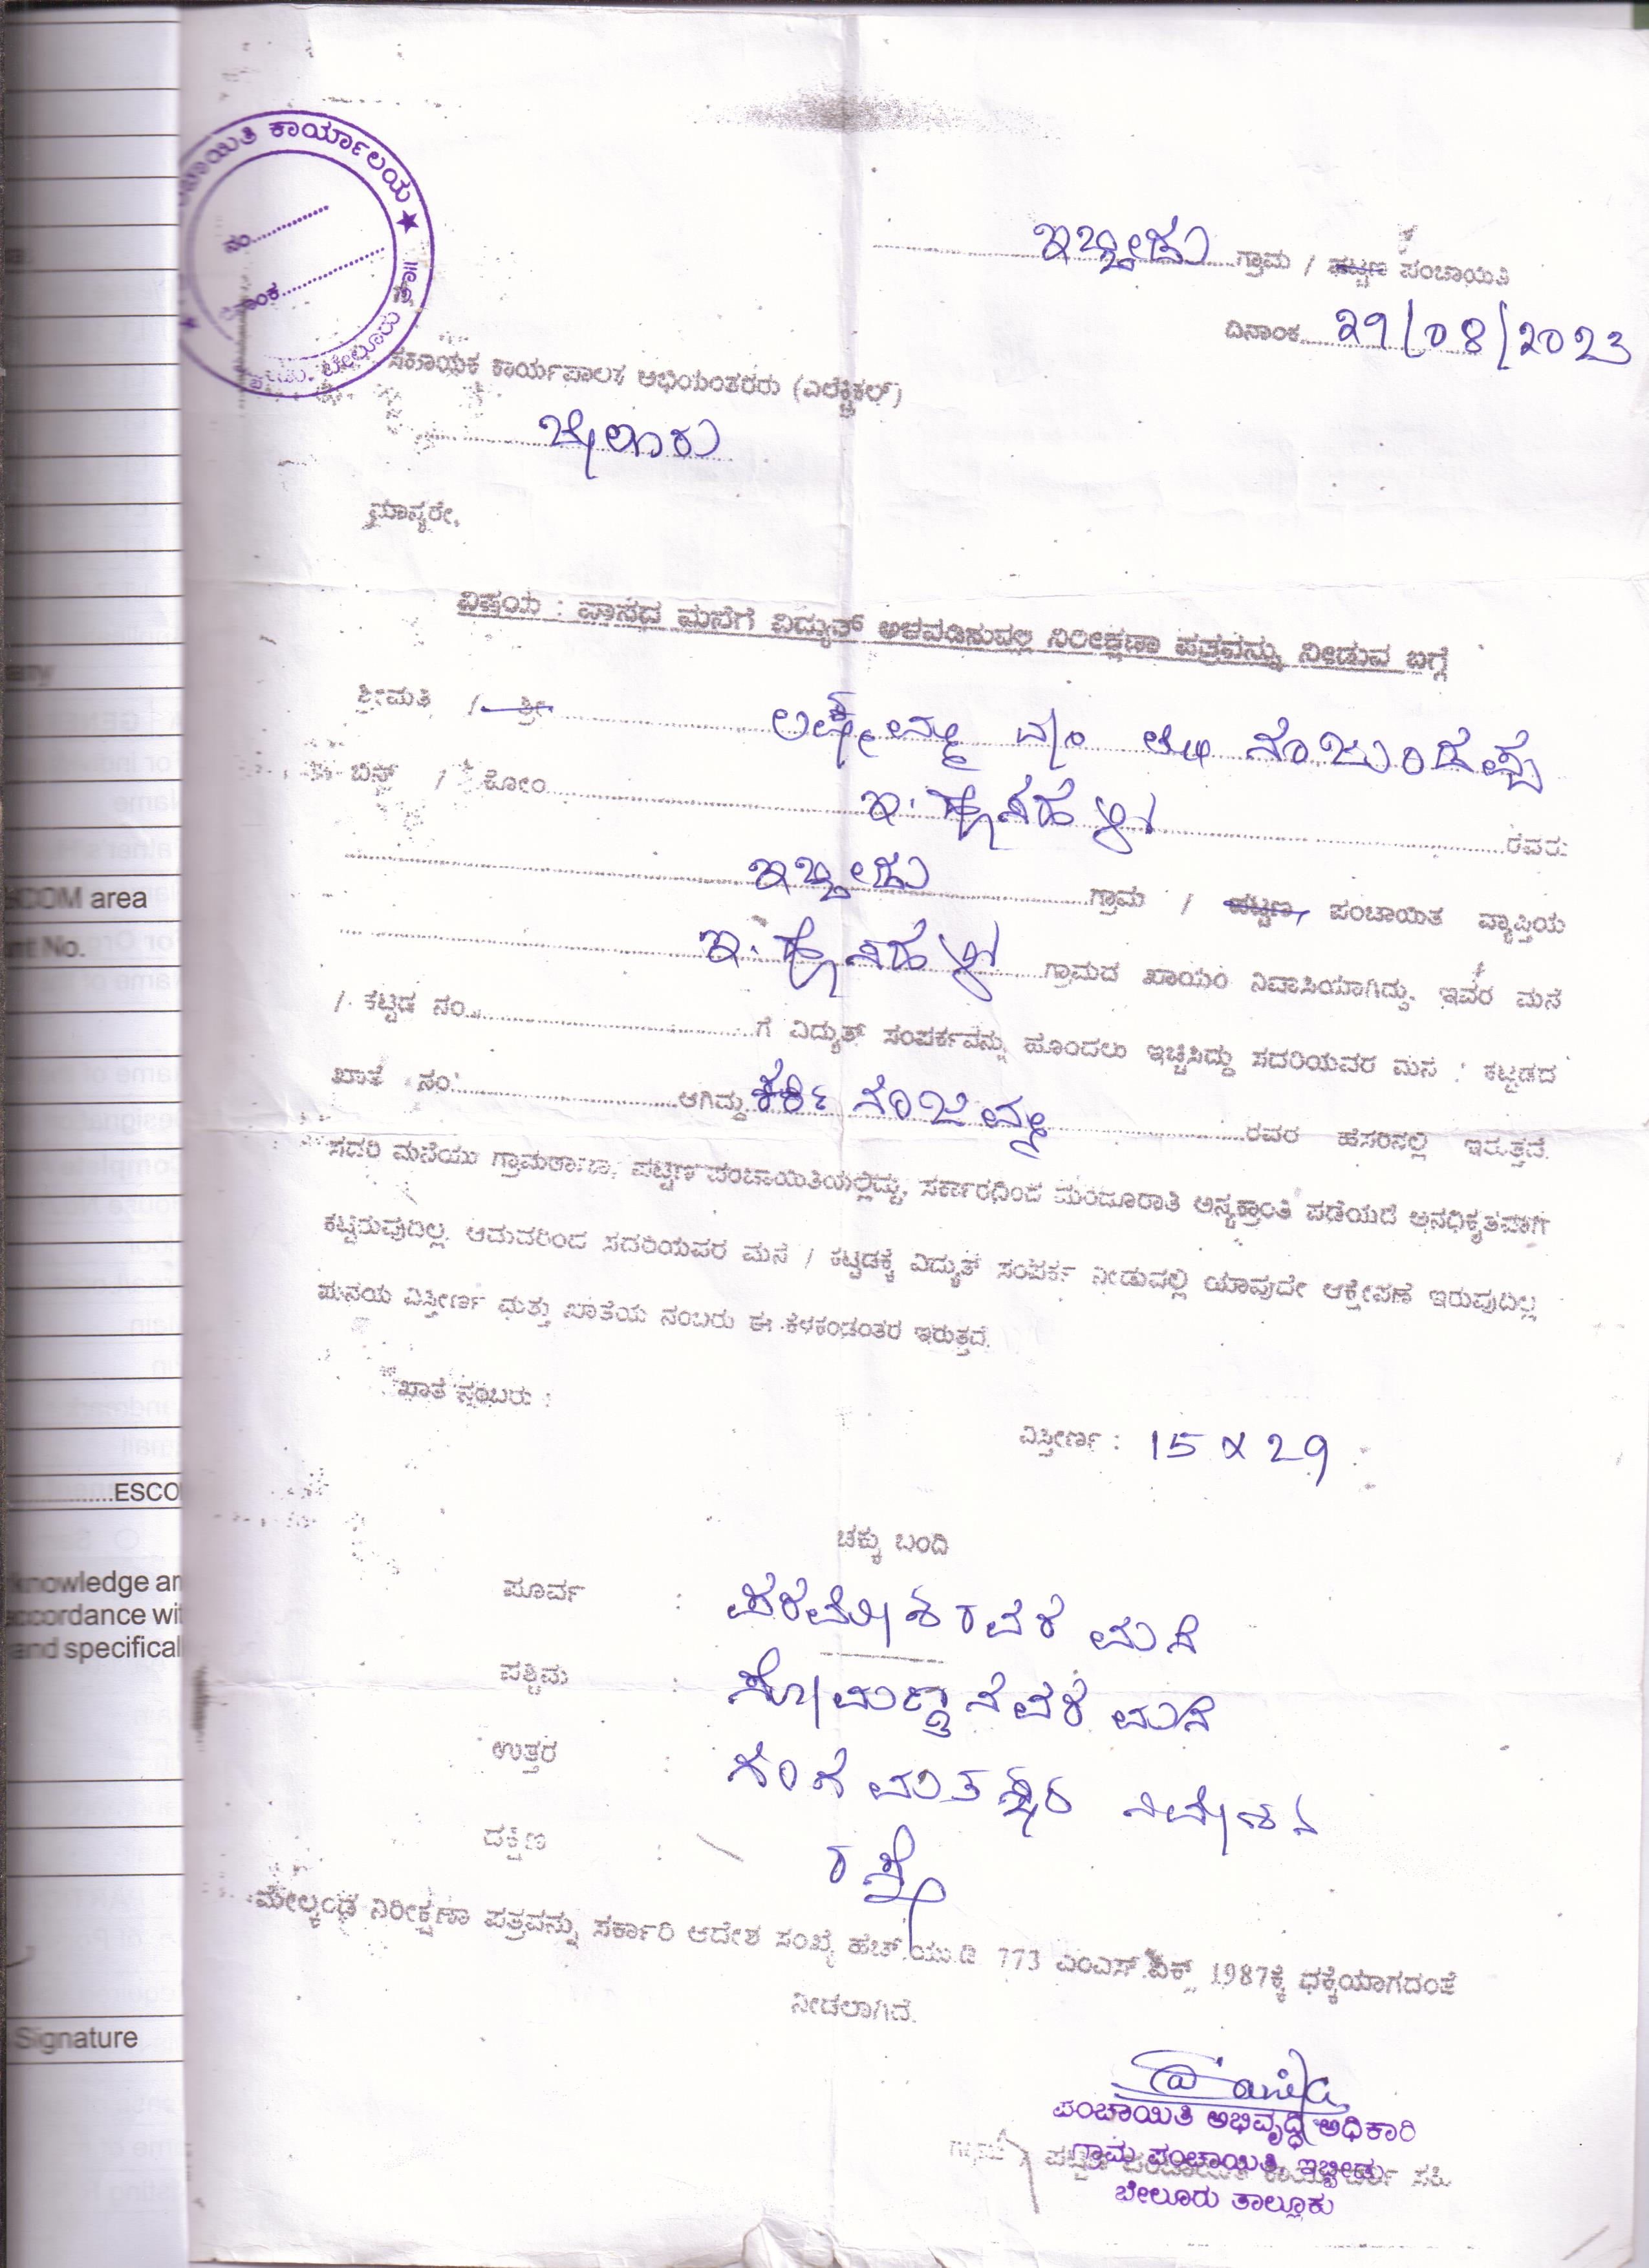 ಕಾರ್ಯಾಲಯ ★
ನಂ..............
ಇಬ್ಬೀಡು ಗ್ರಾಮ / ಪಟ್ಟಣ ಪಂಚಾಯಿತಿ
ದಿನಾಂಕ 29/08/2023
ಸಹಾಯಕ ಕಾರ್ಯಪಾಲಕ ಅಭಿಯಂತರರು (ಎಲೆಕ್ಟ್ರಿಕಲ್)
ಬೇಲೂರು
ಮಾನ್ಯರೇ,
ವಿಷಯ : ವಾಸದ ಮನೆಗೆ ವಿದ್ಯುತ್ ಅಳವಡಿಸುವಲ್ಲಿ ನಿರೀಕ್ಷಣಾ ಪತ್ರವನ್ನು ನೀಡುವ ಬಗ್ಗೆ
ಶ್ರೀಮತಿ / ಶ್ರೀ ಲಕ್ಷ್ಮಮ್ಮ ನಂಜುಂಡಪ್ಪ
ಬಿನ್ / ಕೋಂ ರವರು
ಇಬ್ಬೀಡು ಗ್ರಾಮ / ಪಟ್ಟಣ, ಪಂಚಾಯಿತ ವ್ಯಾಪ್ತಿಯ
ಗ್ರಾಮದ ಖಾಯಂ ನಿವಾಸಿಯಾಗಿದ್ದು, ಇವರ ಮನೆ
/ ಕಟ್ಟಡ ನಂ. ಗೆ ವಿದ್ಯುತ್ ಸಂಪರ್ಕವನ್ನು ಹೊಂದಲು ಇಚ್ಚಿಸಿದ್ದು ಸದರಿಯವರ ಮನೆ / ಕಟ್ಟಡದ
ಖಾತೆ ನಂ. ಆಗಿದ್ದು ನಂಜಮ್ಮ ರವರ ಹೆಸರಿನಲ್ಲಿ ಇರುತ್ತದೆ.
ಸದರಿ ಮನೆಯು ಗ್ರಾಮಠಾಣಾ, ಪಟ್ಟಣ ಪಂಚಾಯಿತಿಯಲ್ಲಿದ್ದು, ಸರ್ಕಾರದಿಂದ ಮಂಜೂರಾತಿ ಅನ್ಯಕ್ರಾಂತಿ ಪಡೆಯದೆ ಅನಧಿಕೃತವಾಗಿ
ಕಟ್ಟಿರುವುದಿಲ್ಲ. ಆದುದರಿಂದ ಸದರಿಯವರ ಮನೆ / ಕಟ್ಟಡಕ್ಕೆ ವಿದ್ಯುತ್ ಸಂಪರ್ಕ ನೀಡುವಲ್ಲಿ ಯಾವುದೇ ಆಕ್ಷೇಪಣೆ ಇರುವುದಿಲ್ಲ
ಮನೆಯ ವಿಸ್ತೀರ್ಣ ಮತ್ತು ಖಾತೆಯ ನಂಬರು ಈ ಕೆಳಕಂಡಂತೆ ಇರುತ್ತದೆ.
ಖಾತೆ ನಂಬರು :
ವಿಸ್ತೀರ್ಣ : 15 x 29
ಚಕ್ಕು ಬಂದಿ
ಪೂರ್ವ : ಪರಮೇಶರವರ ಮನೆ
ಪಶ್ಚಿಮ : ಸೋಮಣ್ಣನವರ ಮನೆ
ಉತ್ತರ : ಗಂಗಮತಸ್ಥರ ನಿವೇಶನ
ದಕ್ಷಿಣ : ರಸ್ತೆ
ಮೇಲ್ಕಂಡ ನಿರೀಕ್ಷಣಾ ಪತ್ರವನ್ನು ಸರ್ಕಾರಿ ಆದೇಶ ಸಂಖ್ಯೆ ಹೆಚ್.ಯು.ಡಿ 773 ಎಂಎಸ್.ವಿಕ್ 1987ಕ್ಕೆ ಧಕ್ಕೆಯಾಗದಂತೆ
ನೀಡಲಾಗಿದೆ.
ಪಂಚಾಯಿತಿ ಅಭಿವೃದ್ಧಿ ಅಧಿಕಾರಿ
ಗ್ರಾಮ ಪಂಚಾಯಿತಿ, ಇಬ್ಬೀಡು
ಬೇಲೂರು ತಾಲ್ಲೂಕು
COM area
nt No.
ESCO
knowledge an
ccordance wit
and specifical
Signature